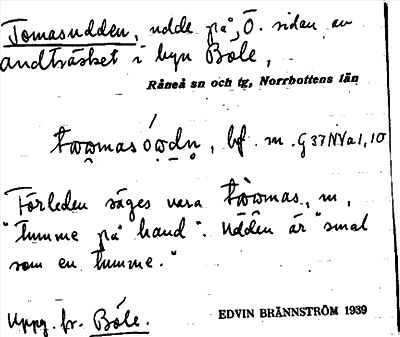 Tomasudden, udde på Ö. sidan av
andträsket i byn Böle,
Råneå sn och tg, Norrbottens län
bf. m.
Förleden säges vara m,
"tumme på hand". Udden är "smal
som en tumme."
Uppg. fr. Böle.
EDVIN BRÄNNSTRÖM 1939